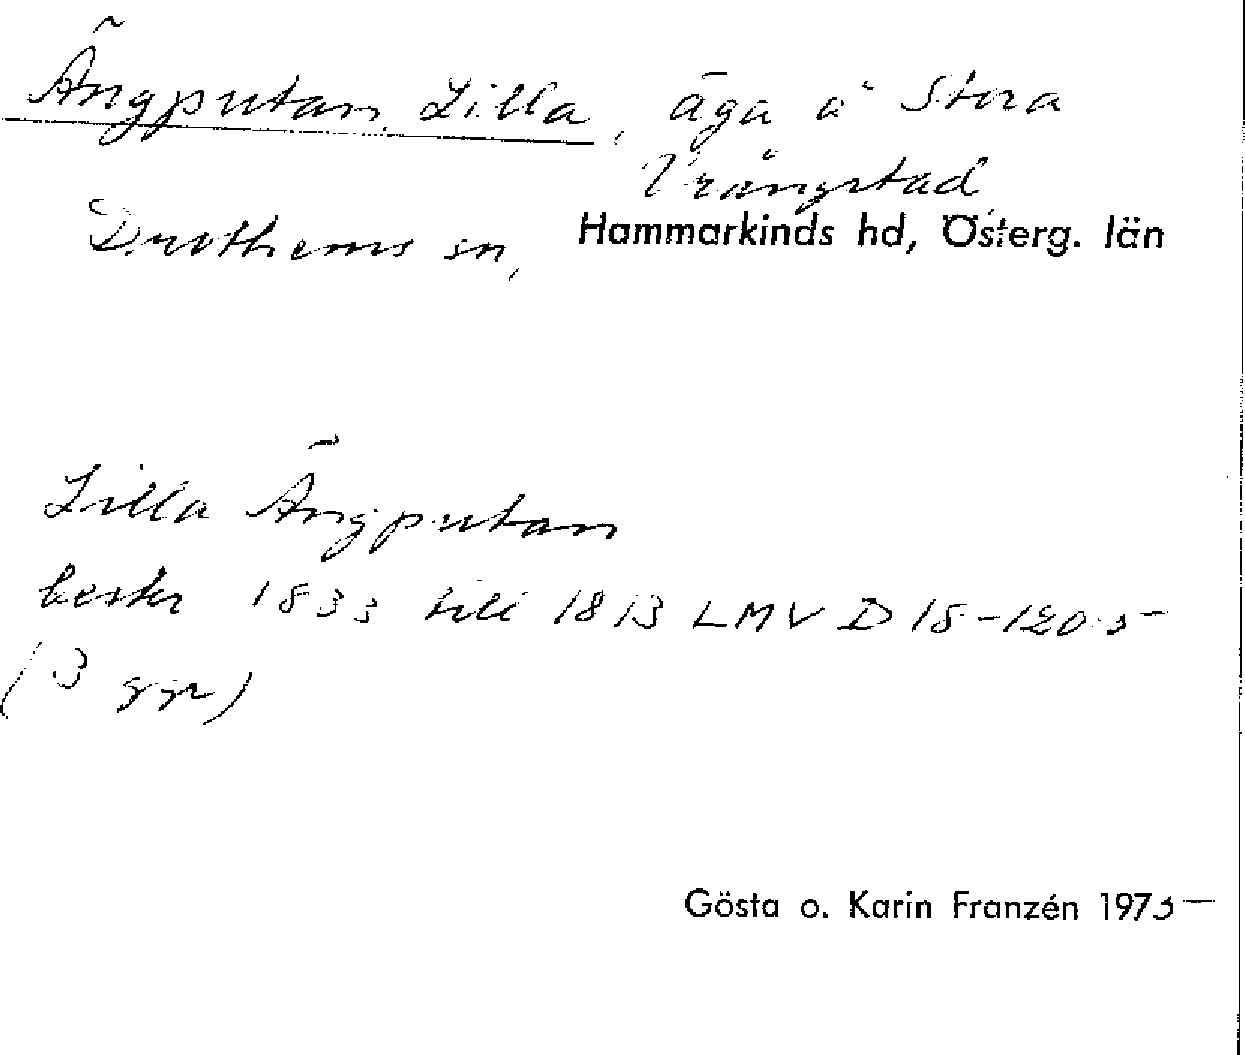 Ängputan, Lilla, äga å Stora
Vrångstad
Drothems sn, Hammarkinds hd, Österg. län
Lilla Ängputan
beskr 1833 till 1813 LMV D 18-120:5
(3 ggr)
Gösta o. Karin Franzén 1975